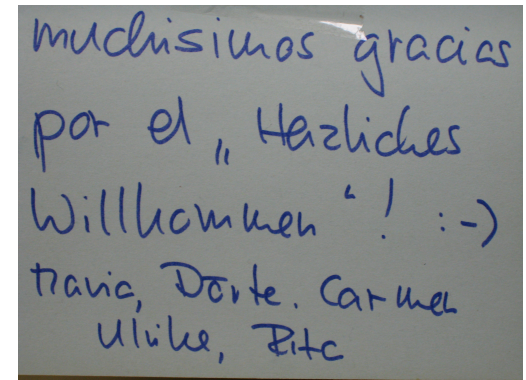 muchisimos gracias
por el „Herzliches
Willkommen“! :-)
Maria, Dörte. Carmen
Ulrike, Rita